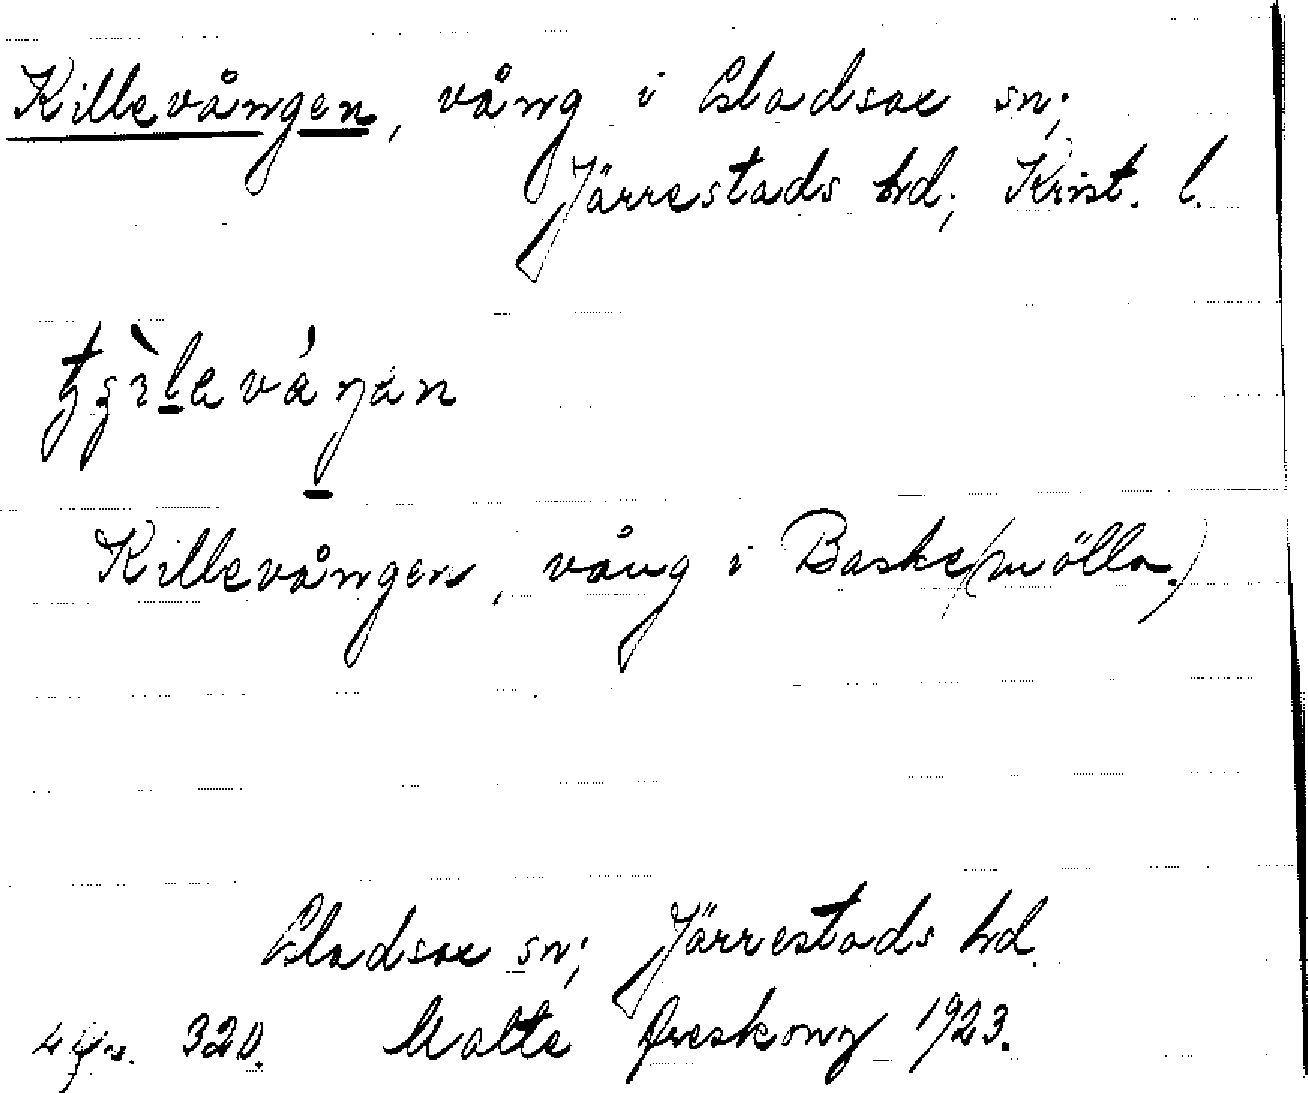 Killevången, vång i Gladsax sn;
Järrestads hd; Krist. l.
Killevången, vång i Baske(mölla.)
Gladsax sn; Järrestads hd.
320. Malte Areskoug 1923.